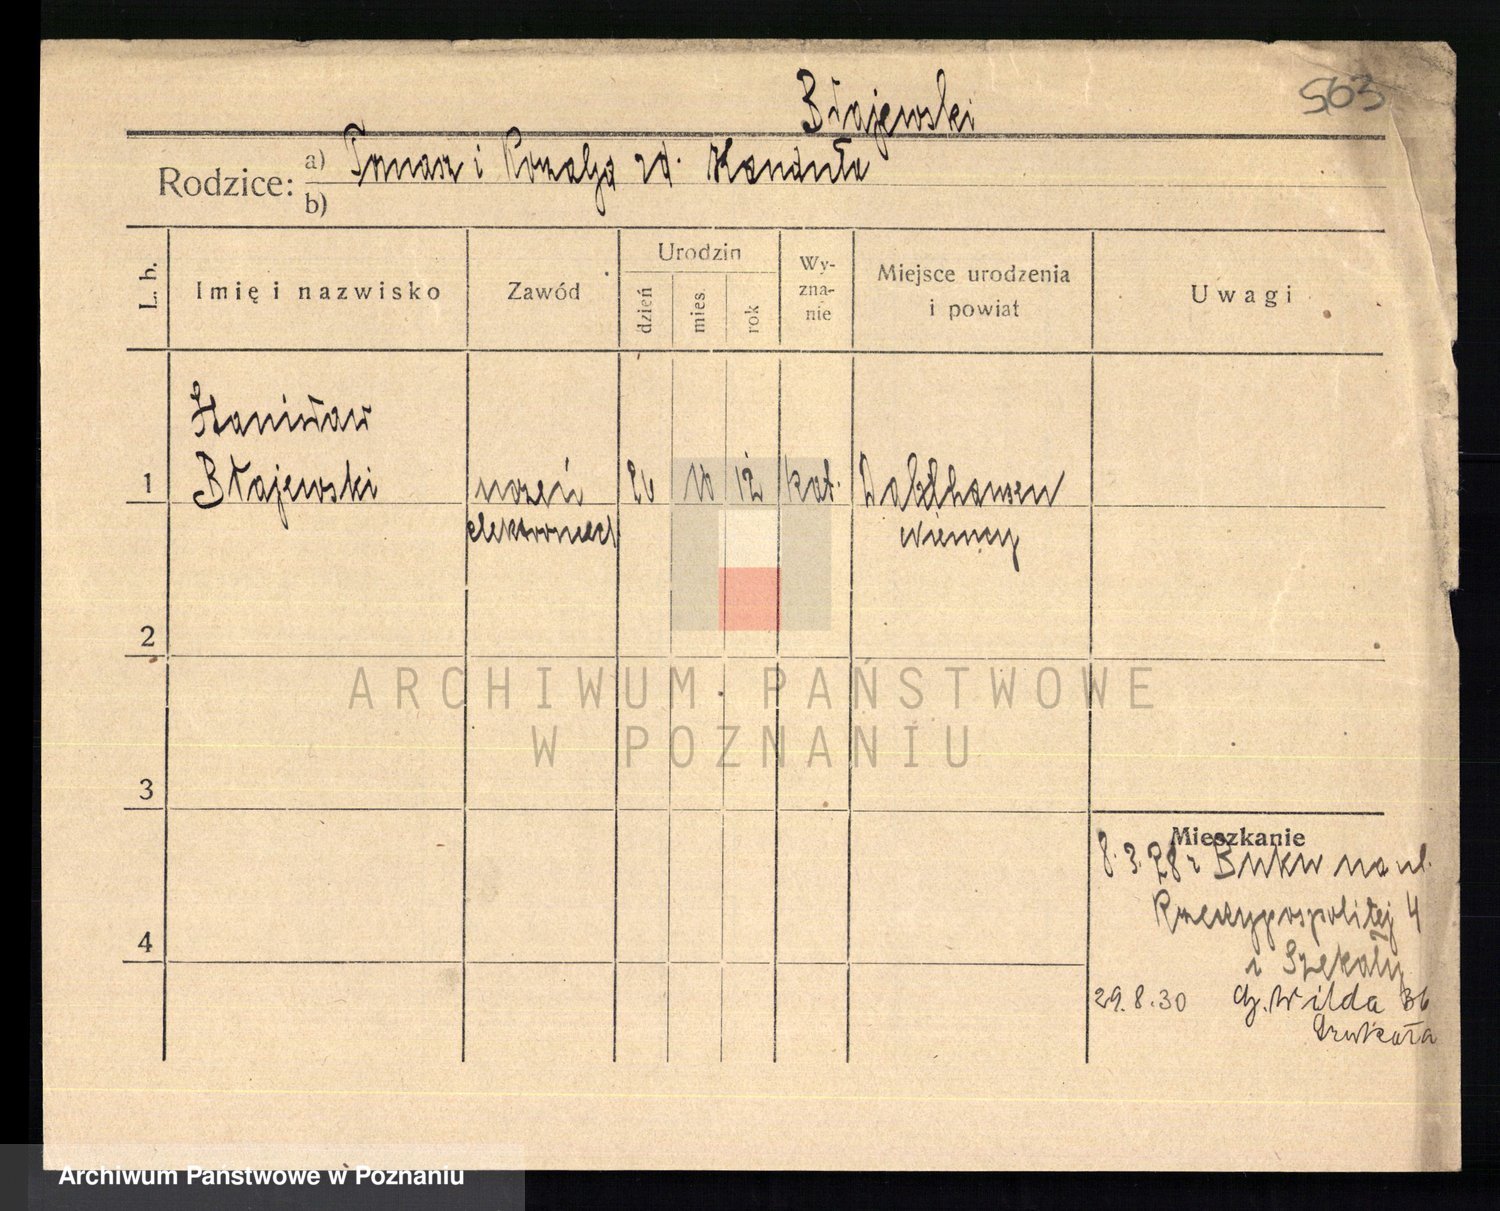 563
Błajewski
Rodzice: a) Tomasz i Rozalja zd. Handuła
b)
L. b.
Imię i nazwisko
Zawód
Urodzin
dzień
mies.
rok
Wy-
zna-
nie
Miejsce urodzenia
i powiat
Uwagi
Stanisław
1 Błajewski uczeń 26 10 12 kat. Dahlhausen
elektrotech Niemcy
2
ARCHIWUM PAŃSTWOWE
W POZNANIU
3
4
Mieszkanie
8.3.28 z Buku na ul.
Rzeczypospolitej 4
i Szekały
29.8.30 G. Wilda 36
Archiwum Państwowe w Poznaniu